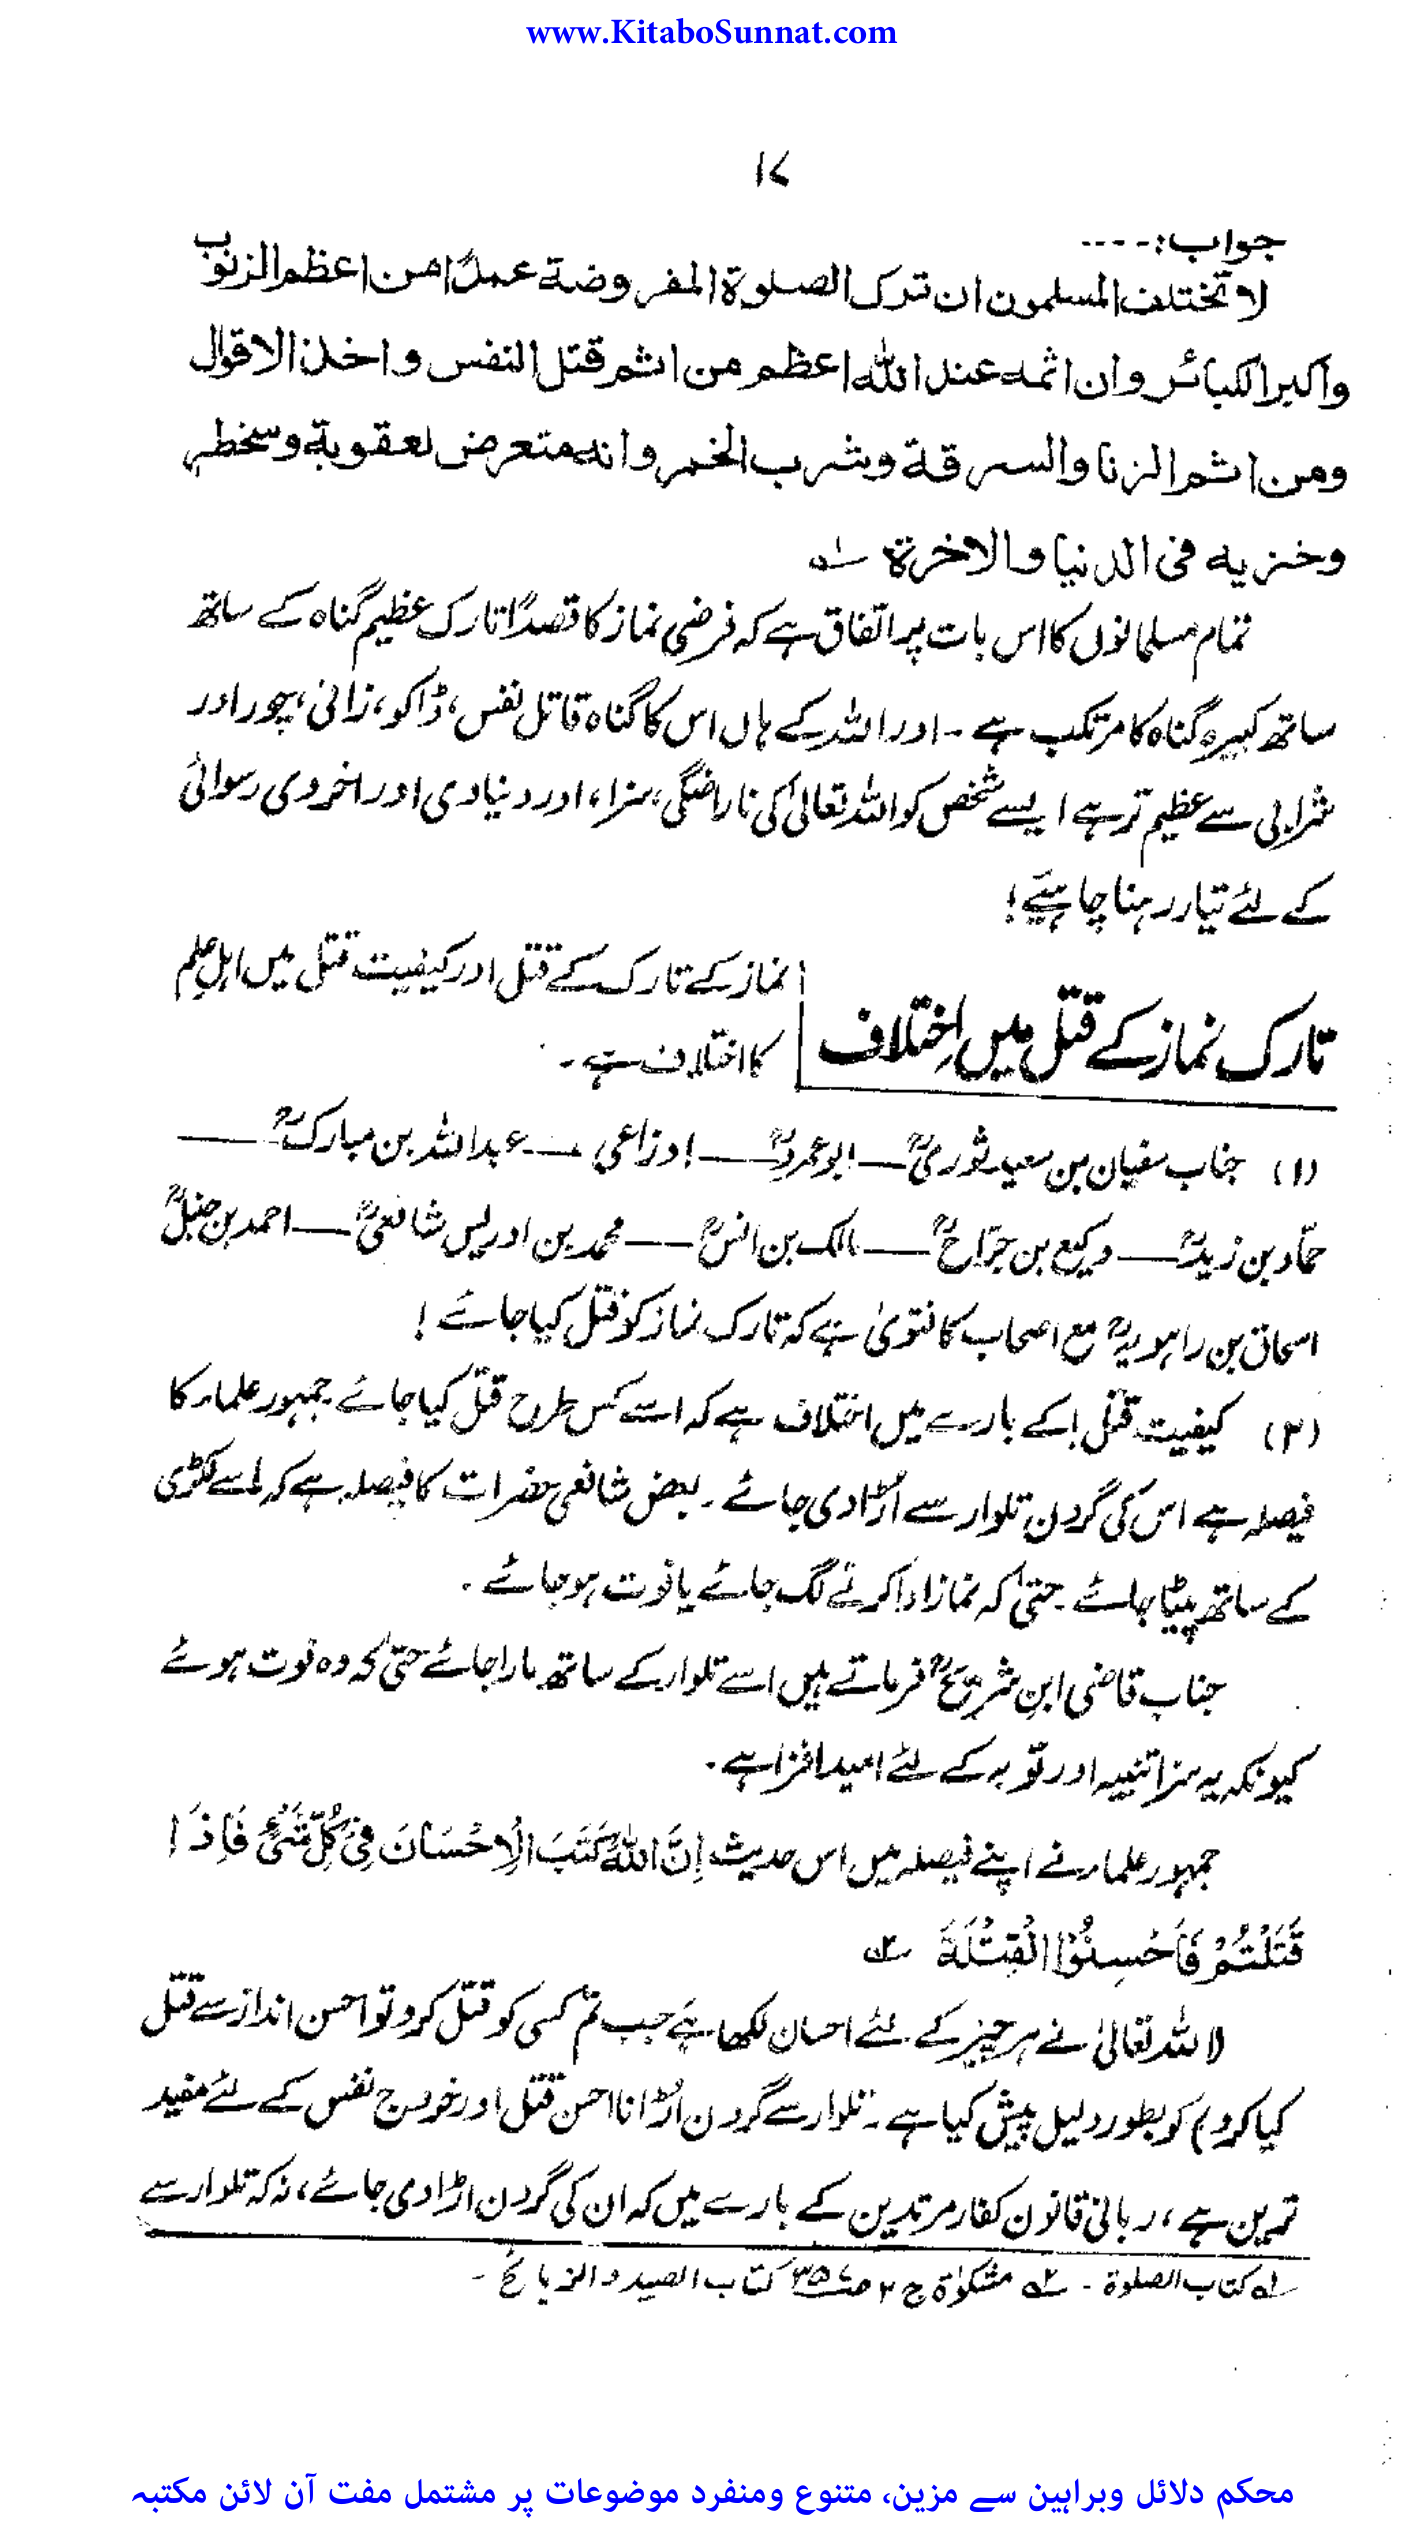 www.KitaboSunnat.com
۱۷
جواب:----
لا تختلف المسلمون ان ترک الصلوۃ المفروضۃ عمدًا من اعظم الزنوب
واکبر الکبائر وان اثمہ عند اللہ اعظم من اثم قتل النفس واخذ الاقوال
ومن اثم الزنا والسرقۃ وشرب الخمر وانہ متعرض لعقوبۃ وسخطہ
وخزیہ فی الدنیا والاخرۃ ۱ھ
تمام مسلمانوں کا اس بات پر اتفاق ہے کہ فرضی نماز کا قصدًا تارک عظیم گناہ کے ساتھ
ساتھ کبیرہ گناہ کا مرتکب ہے ۔ اور اللہ کے ہاں اس کا گناہ قاتل نفس، ڈاکو، زانی، چور اور
شرابی سے عظیم تر ہے ایسے شخص کو اللہ تعالیٰ کی ناراضگی، سزا، اور دنیاوی اور اخروی رسوائی
کے لئے تیار رہنا چاہیئے!
تارک نماز کے قتل میں اِختلاف
نماز کے تارک کے قتل اور کیفیت قتل میں اہلِ علم
کا اختلاف ہے ۔
(۱) جناب سفیان بن سعید ثوریؒ — ابو عمروؒ — اوزاعی — عبد اللہ بن مبارکؒ —
حمّاد بن زیدؒ — وکیع بن جرّاحؒ — مالک بن انسؒ — محمد بن ادریس شافعیؒ — احمد بن حنبلؒ
اسحاق بن راہویہؒ مع اصحاب کا فتویٰ ہے کہ تارک نماز کو قتل کیا جائے!
(۲) کیفیت قتل! کے بارے میں اختلاف ہے کہ اسے کس طرح قتل کیا جائے جمہور علماء کا
فیصلہ ہے اس کی گردن تلوار سے اُڑا دی جائے ۔ بعض شافعی حضرات کا فیصلہ ہے کہ اسے لکڑی
کے ساتھ پیٹا جائے حتیٰ کہ نماز ادا کرنے لگ جائے یا فوت ہو جائے ۔
جناب قاضی ابنِ شریحؒ فرماتے ہیں اسے تلوار کے ساتھ مارا جائے حتیٰ کہ وہ فوت ہوئے
کیونکہ یہ سزا تنبیہ اور توبہ کے لئے امید افزا ہے ۔
جمہور علماء نے اپنے فیصلہ میں اس حدیث اِنَّ اللہَ کَتَبَ الْاِحْسَانَ فِیْ کُلِّ شَیْءٍ فَاِذَا
قَتَلْتُمْ فَاَحْسِنُوْا الْقِتْلَۃَ ۲ھ
(اللہ تعالیٰ نے ہر چیز کے لئے احسان لکھا ہے جب تم کسی کو قتل کرو تو احسن انداز سے قتل
کیا کرو) کو بطور دلیل پیش کیا ہے ۔ تلوار سے گردن اُڑانا احسن قتل اور خروج نفس کے لئے مفید
ترین ہے، ربانی قانون کفار مرتدین کے بارے میں کہ ان کی گردن اڑا دی جائے، نہ کہ تلوار سے
۱ھ کتاب الصلوۃ ۔ ۲ھ مشکوٰۃ ج ۲ ص۳۵۷ کتاب الصید والذبائح ۔
محکم دلائل وبراہین سے مزین، متنوع ومنفرد موضوعات پر مشتمل مفت آن لائن مکتبہ